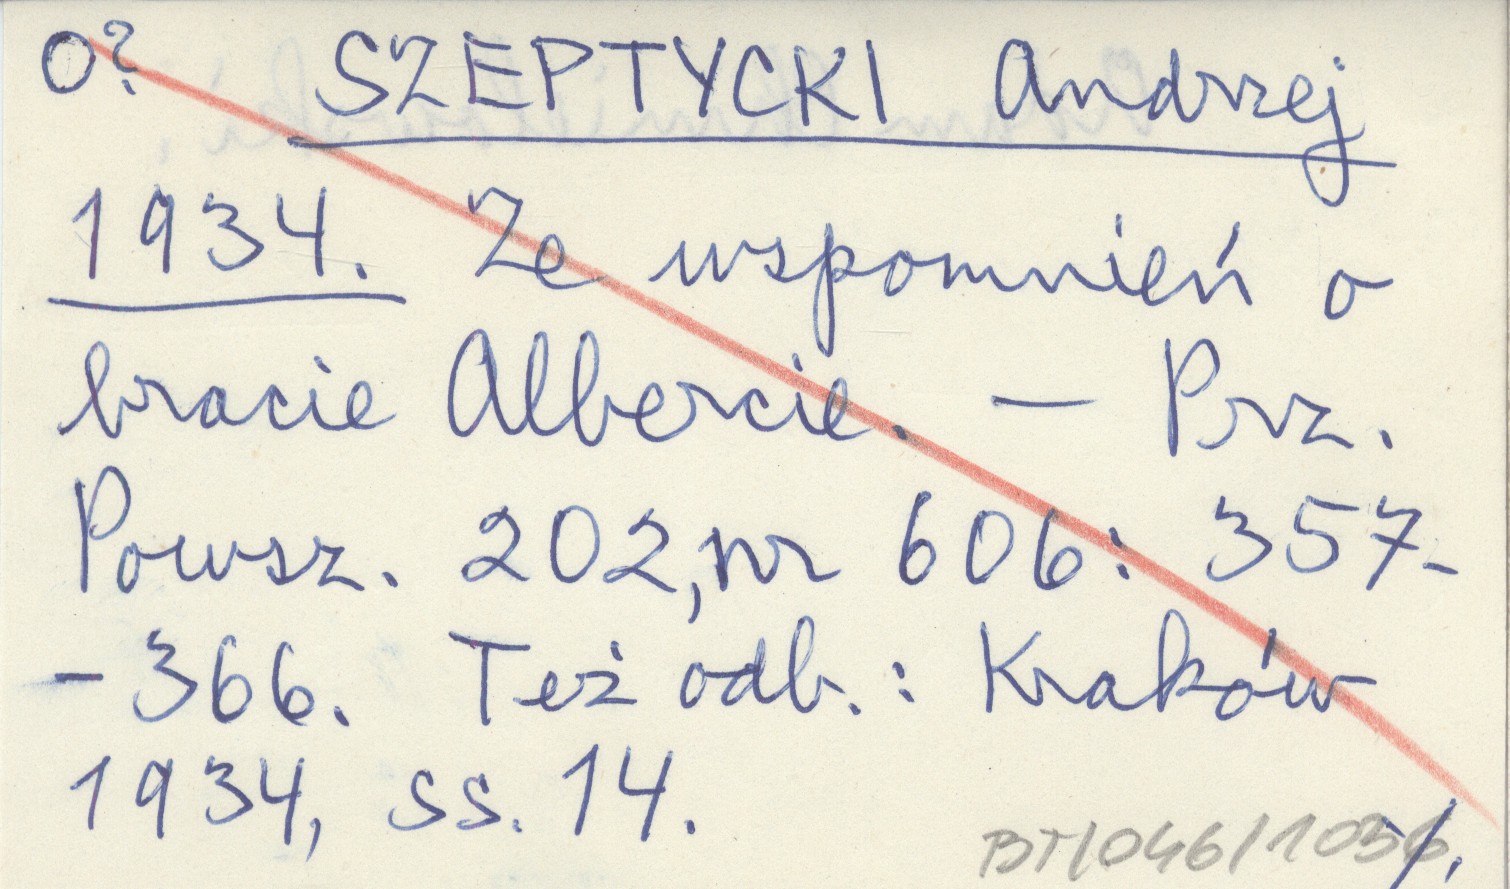 O? SZEPTYCKI Andrzej
1934. Ze wspomnień o
bracie Albercie. — Prz.
Powsz. 202, nr 606: 357-
-366. Też odb.: Kraków
1934, ss. 14.
BT/046/1036 ./.